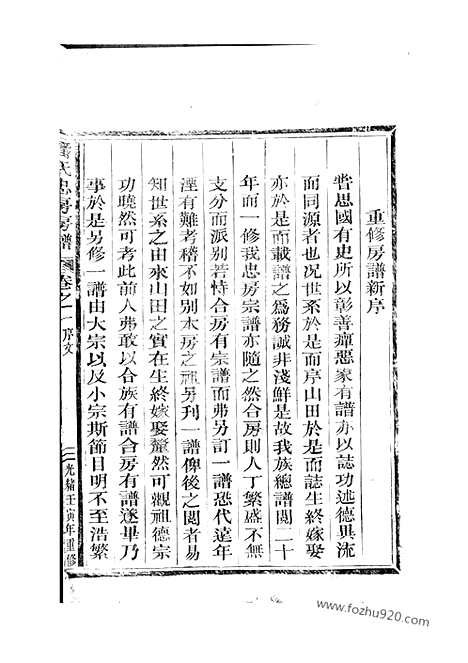 重修房譜新序
嘗思國有史所以彰善癉惡家有譜亦以誌功述德異流
而同源者也况世系於是而序山田於是而誌生終嫁娶
亦於是而載譜之爲務誠非淺鮮是故我族總譜閱二十
年而一修我忠房宗譜亦隨之然合房則人丁繁盛不無
支分而派別若恃合房有宗譜而弗另訂一譜恐代遠年
湮有難考稽不如別本房之祖另刋一譜俾後之閱者易
知世系之由來山田之實在生終嫁娶釐然可觀祖德宗
功曉然可考此前人弗敢以合族有譜合房有譜遂畢乃
事於是另修一譜由大宗以及小宗斯節目明不至浩繁
氏忠房房譜 卷之一 序文 一 光緒壬寅年重修
www.fozhu920.com